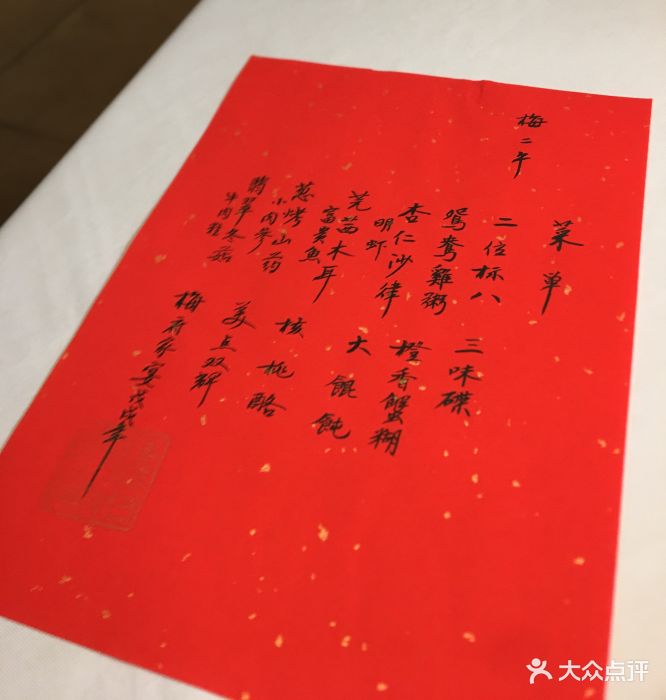 梅二午
菜单
二位标八
三味碟
鸳鸯雞粥
橙香蟹糊
杏仁沙律
明虾
大馄饨
芫茜木耳
富贵鱼
核桃酪
葱烤山药
小肉參
美点双辉
翡翠冬菇
牛肉粒
梅府家宴戊戌年
大众点评